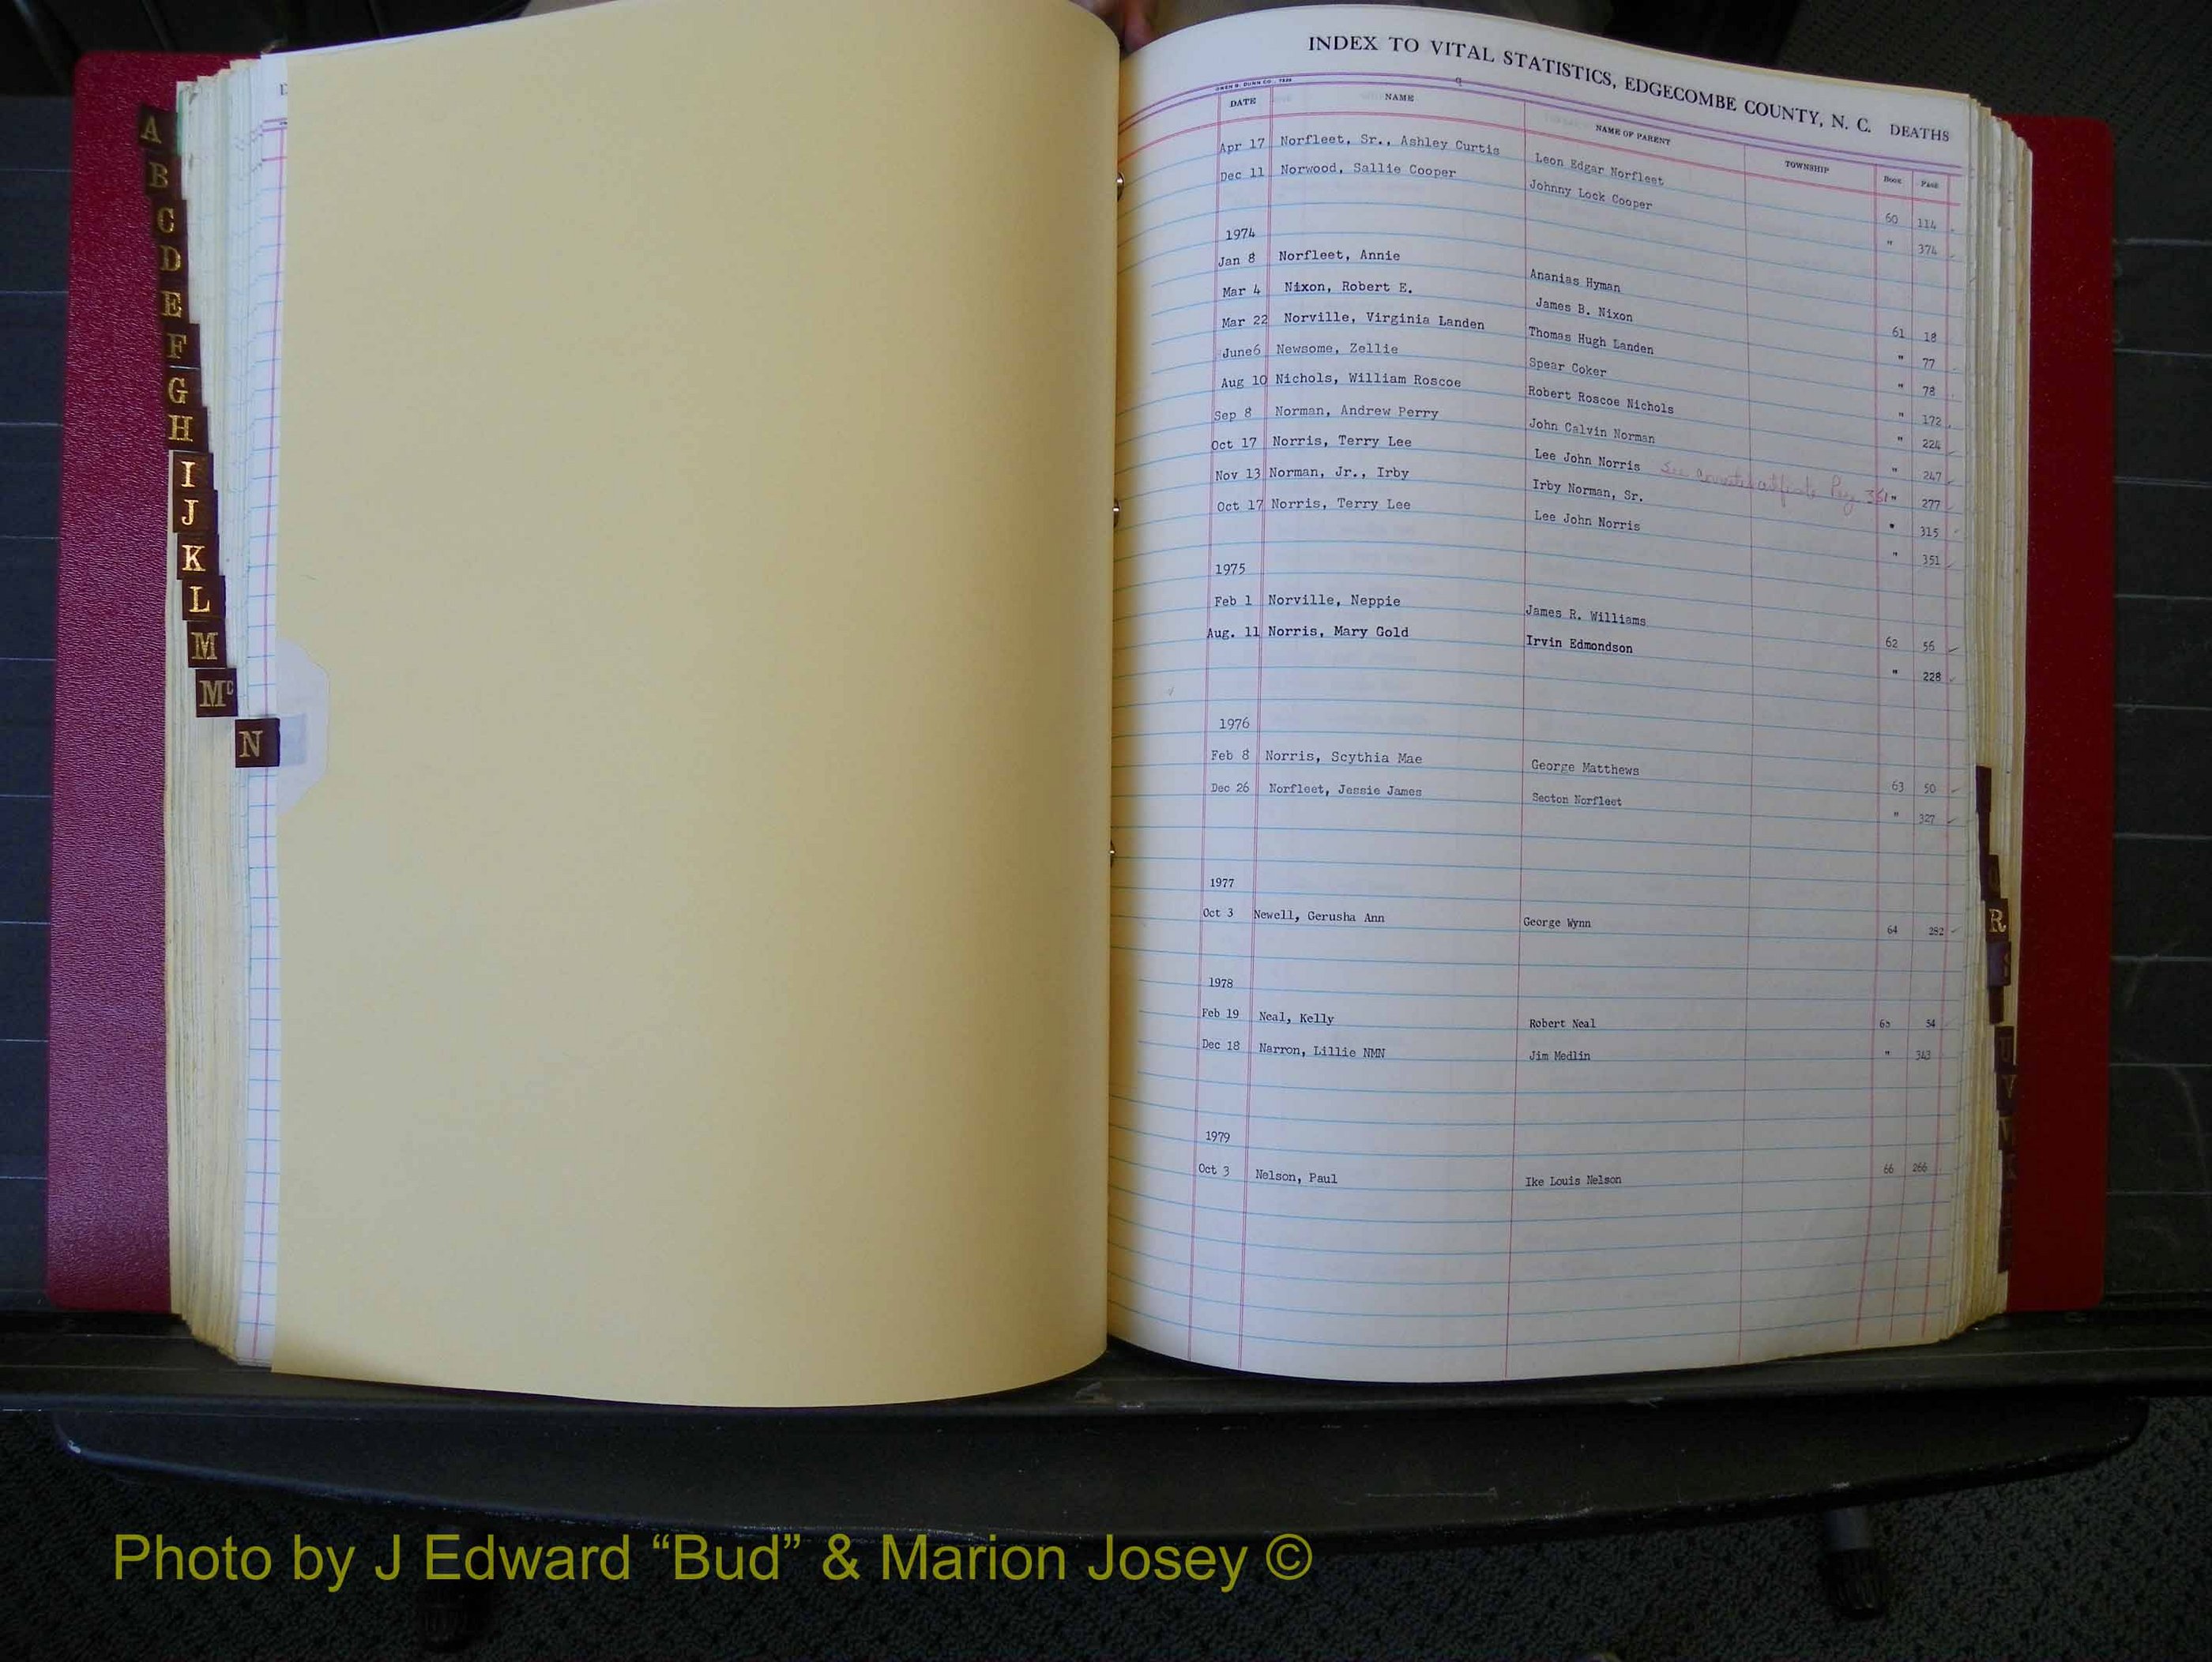 INDEX TO VITAL STATISTICS, EDGECOMBE COUNTY, N. C. DEATHS
OWEN G. DUNN CO.
DATE NAME NAME OF PARENT TOWNSHIP BOOK PAGE
Apr 17 Norfleet, Sr., Ashley Curtis Leon Edgar Norfleet 60 114
Dec 11 Norwood, Sallie Cooper Johnny Lock Cooper " 374
1974
Jan 8 Norfleet, Annie Ananias Hyman 61 18
Mar 4 Nixon, Robert E. James B. Nixon " 77
Mar 22 Norville, Virginia Landen Thomas Hugh Landen " 78
June6 Newsome, Zellie Spear Coker " 172
Aug 10 Nichols, William Roscoe Robert Roscoe Nichols " 224
Sep 8 Norman, Andrew Perry John Calvin Norman " 247
Oct 17 Norris, Terry Lee Lee John Norris See Pg 351 " 277
Nov 13 Norman, Jr., Irby Irby Norman, Sr. " 315
Oct 17 Norris, Terry Lee Lee John Norris " 351
1975
Feb 1 Norville, Neppie James R. Williams 62 56
Aug. 11 Norris, Mary Gold Irvin Edmondson " 228
1976
Feb 8 Norris, Scythia Mae George Matthews 63 50
Dec 26 Norfleet, Jessie James Secton Norfleet " 327
1977
Oct 3 Newell, Gerusha Ann George Wynn 64 282
1978
Feb 19 Neal, Kelly Robert Neal 65 54
Dec 18 Narron, Lillie NMN Jim Medlin " 343
1979
Oct 3 Nelson, Paul Ike Louis Nelson 66 266
A
B
C
D
E
F
G
H
I
J
K
L
M
Mc
N
R
U
V
Photo by J Edward “Bud” & Marion Josey ©